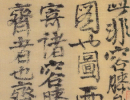 此非容膝
圖也圖西
寄諸容膝
齋者也